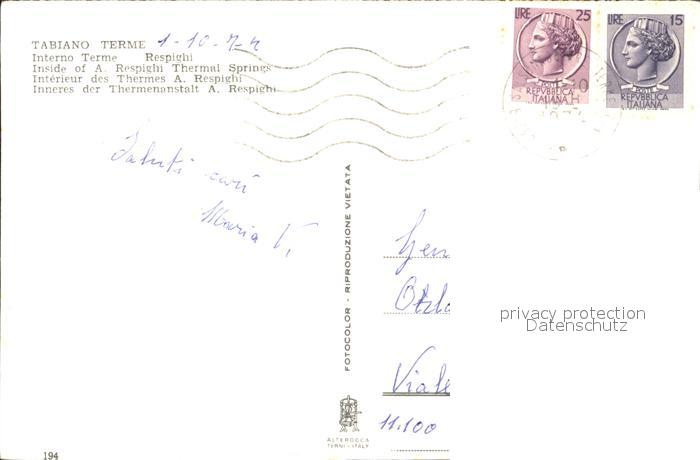 TABIANO TERME 1-10-74
Interno Terme Respighi
Inside of A. Respighi Thermal Springs
Intérieur des Thermes A. Respighi
Inneres der Thermenanstalt A. Respighi
LIRE 25
POSTE
REPVBBLICA
ITALIANA
LIRE 15
POSTE
REPVBBLICA
ITALIANA
Saluti cari
Maria V.
FOTOCOLOR - RIPRODUZIONE VIETATA
Gen
Viale
11.100
privacy protection
Datenschutz
ALTEROCCA
TERNI-ITALY
194